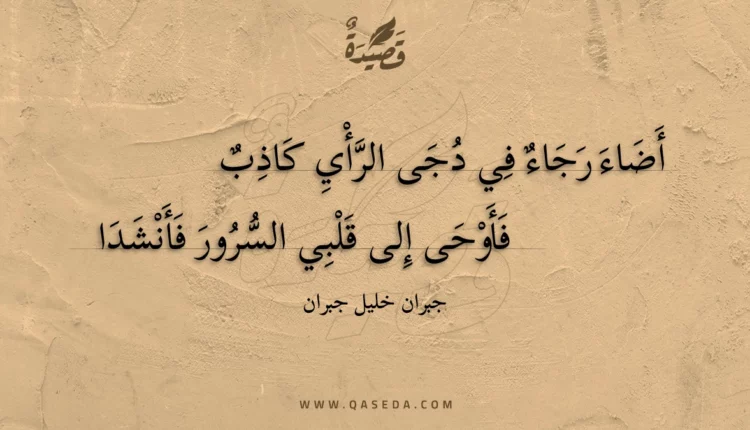 قَصِيدَةٌ
أَضَاءَ رَجَاءٌ فِي دُجَى الرَّأْيِ كَاذِبٌ
فَأَوْحَى إِلى قَلْبِي السُّرُورَ فَأَنْشَدَا
جبران خليل جبران
WWW.QASEDA.COM